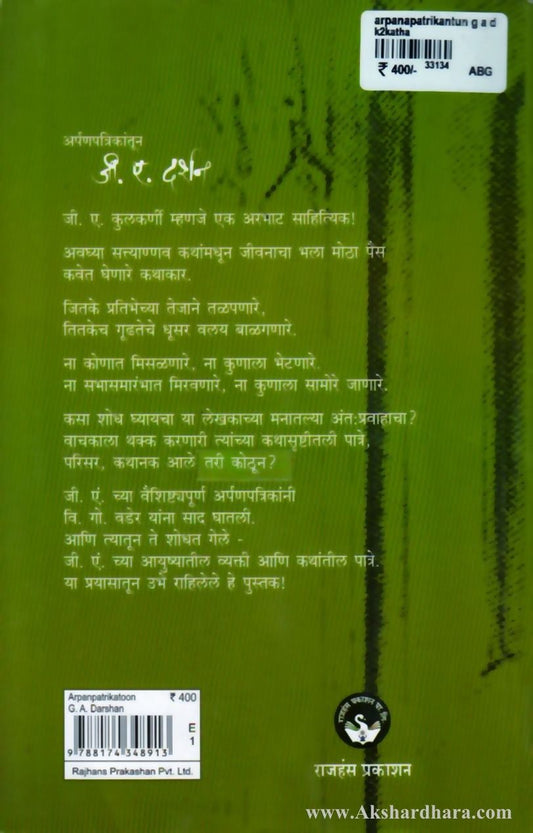 arpanapatrikantun g a d
k2katha
₹ 400/- 33134 ABG
अर्पणपत्रिकांतून
जी. ए. दर्शन
जी. ए. कुलकर्णी म्हणजे एक अरभाट साहित्यिक!
अवघ्या सत्त्याण्णव कथांमधून जीवनाचा भला मोठा पैस
कवेत घेणारे कथाकार.
जितके प्रतिभेच्या तेजाने तळपणारे,
तितकेच गूढतेचे धूसर वलय बाळगणारे.
ना कोणात मिसळणारे, ना कुणाला भेटणारे.
ना सभासमारंभात मिरवणारे, ना कुणाला सामोरे जाणारे.
कसा शोध घ्यायचा या लेखकाच्या मनातल्या अंत:प्रवाहाचा?
वाचकाला थक्क करणारी त्यांच्या कथासृष्टीतली पात्रे,
परिसर, कथानक आले तरी कोठून?
जी. एं. च्या वैशिष्ट्यपूर्ण अर्पणपत्रिकांनी
वि. गो. वडेर यांना साद घातली.
आणि त्यातून ते शोधत गेले -
जी. एं. च्या आयुष्यातील व्यक्ती आणि कथांतील पात्रे.
या प्रयासातून उभे राहिलेले हे पुस्तक!
Arpanpatrikatoon ₹ 400
G. A. Darshan
E
1
9 788174 348913
Rajhans Prakashan Pvt. Ltd.
राजहंस प्रकाशन
www.Akshardhara.com